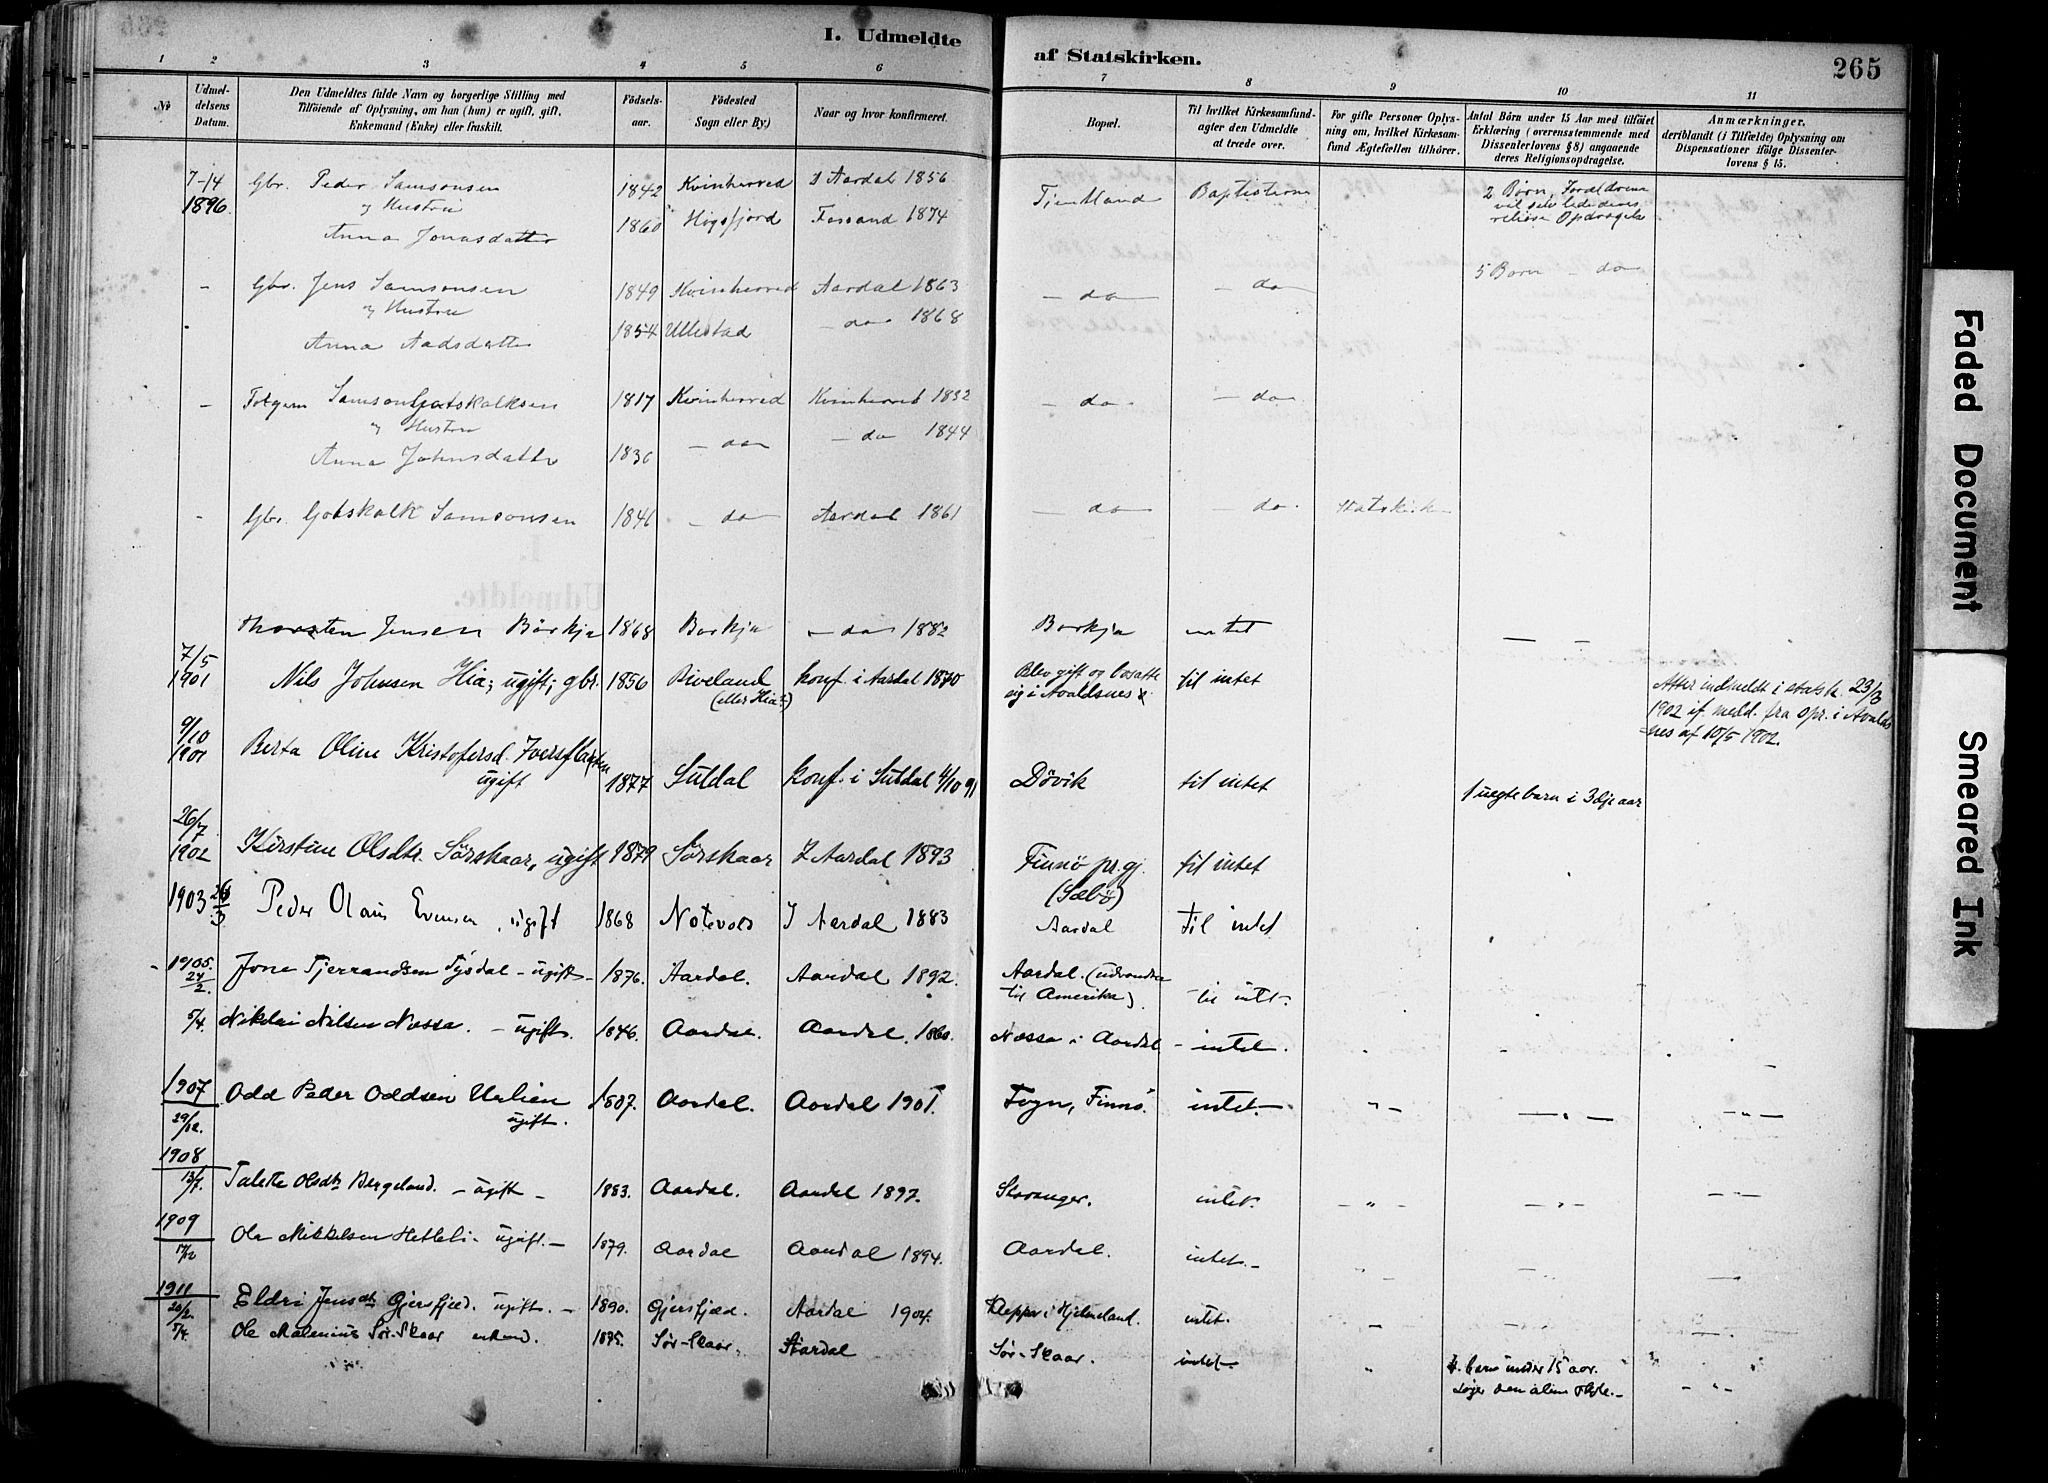 I. Udmeldte
af Statskirken.
265
1 2 3 4 5 6 7 8 9 10 11
No
Udmel-
delsens
Datum.
Den Udmeldtes fulde Navn og borgerlige Stilling med
Tilföiende af Oplysning, om han (hun) er ugift, gift,
Enkemand (Enke) eller fraskilt.
Födsels-
aar.
Födested
Sogn eller By.)
Naar og hvor konfirmeret.
Bopæl.
Til hvilket Kirkesamfund-
agter den Udmeldte
at træde over.
For gifte Personer Oplys-
ning om, hvilket Kirkesam-
fund Ægtefællen tilhörer.
Antal Börn under 15 Aar med tilföiet
Erklæring (overensstemmende med
Dissenterlovens § 8) angaaende
deres Religionsopdragelse.
Anmærkninger,
deriblandt (i Tilfælde) Oplysning om
Dispensationer ifölge Dissenter-
lovens § 15.
7-14
1896
Gbr. Peder Samsonsen 1842 Kvinherred I Aardal 1856 Baptisterne 2 Børn, Foreldrene
og Hustru vil selv lede deres
Anna Jonasdatter 1860 Høgsfjord Fossand 1874 religiøse Opdragelse
- Gbr. Jens Samsonsen 1849 Kvinherred Aardal 1863 - do - do 5 Børn - do
og Hustru
Anna Aadsdatter 1854 Ullestad - do 1868
- Samson Gotskalksen 1817 Kvinherred Kvinherred 1832 - do - do
og Hustru
Anna Johnsdatter 1836 - do - do 1844
- Gbr. Gotskalk Samsonsen 1846 - do Aardal 1861 - do - do Statskirk
Thorsten Jensen Börkja 1868 Borkja - do 1882 Borkja intet - -
7/5
1901 Nils Johnsen Hia; ugift; gbr. 1856 Riveland konf. i Aardal 1870 Blev gift og bosatte til intet Atter indmeldt i statsk. 23/3
(eller Hia?) sig i Avaldsnes 1902 if. meld. fra spr. i Avalds
nes af 10/5 1902.
9/10
1901 Berta Oline Kristofersd. Iversflaten
ugift 1877 Suldal konf. i Suldal 4/10 91 Dövik til intet 1 uegte barn i 3dje aar
26/7
1902 Kirstine Olsdtr. Sørskaar, ugift 1879 Sørskaar I Aardal 1893 Finnö pr.gj. til intet
(Sæbö)
1903 26/3 Peder Olaus Evensen, ugift 1868 Notevold I Aardal 1883 Aardal til intet
1905.
24/2. Jone Tjerrandsen Tysdal - ugift - 1876. Aardal. Aardal 1892. Aardal. (udvandret
til Amerika) til intet.
5/4. Nikolai Nilsen Nessa. - ugift. 1846. Aardal. Aardal. 1860. Nessa i Aardal - intet.
1907
29/12. Odd Peder Oddsen Valien 1887. Aardal. Aardal 1901. Fogn, Finnö. intet.-
ugift.
1908
13/7. Talette Olsdtr Bergeland. - ugift - 1883. Aardal. Aardal 1897. Stavanger. intet.
1909
17/12 Ole Mikkelsen Hetleli - ugift.- 1879. Aardal Aardal 1894. Aardal. intet.-
1911
20/2. Eldri Jensdtr Gjersfjæd. ugift. - 1890. Gjersfjæd. Aardal 1904. i Hjelmeland. intet.
5/4. Ole Malenius Sör-Skaar enkemd. 1875. Sör-Skaar. Aardal Sör-Skaar. intet. 4. barn under 15 aar.
Faded Document
Smeared Ink